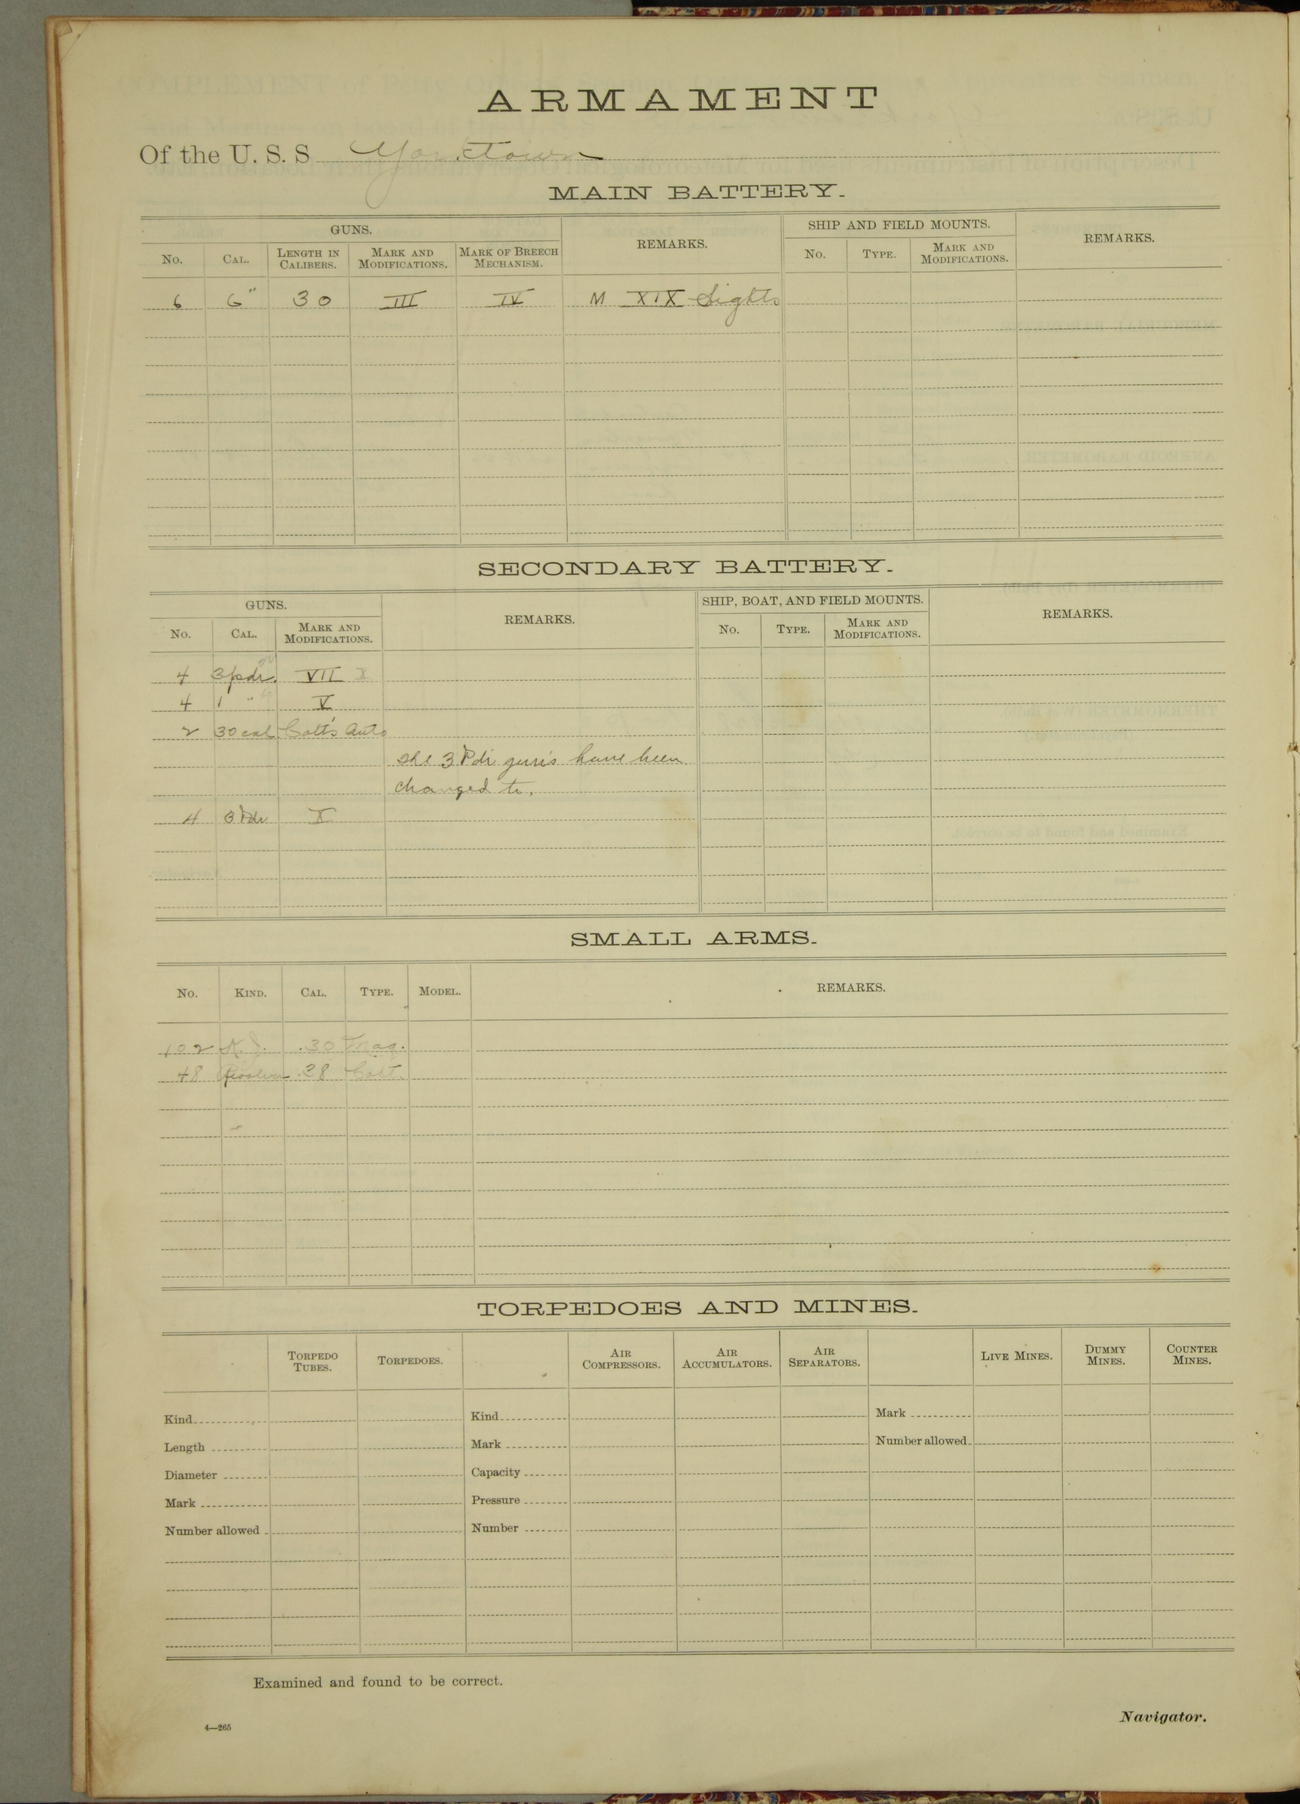 ARMAMENT
Of the U. S. S Yorktown
MAIN BATTERY.
GUNS. REMARKS. SHIP AND FIELD MOUNTS. REMARKS.
No. CAL. LENGTH IN CALIBERS. MARK AND MODIFICATIONS. MARK OF BREECH MECHANISM. No. TYPE. MARK AND MODIFICATIONS.
6 6" 30 III IV M XIX Sights
SECONDARY BATTERY.
GUNS. REMARKS. SHIP, BOAT, AND FIELD MOUNTS. REMARKS.
No. CAL. MARK AND MODIFICATIONS. No. TYPE. MARK AND MODIFICATIONS.
4 3pdr. VII X
4 1 " V
2 30 cal Colt's Auto
The 3 Pdr guns have been
changed to.
4 3 Pdr X
SMALL ARMS.
No. KIND. CAL. TYPE. MODEL. REMARKS.
102 .30 Mag.
48 Revolver .38 Colt
TORPEDOES AND MINES.
TORPEDO TUBES. TORPEDOES. AIR COMPRESSORS. AIR ACCUMULATORS. AIR SEPARATORS. LIVE MINES. DUMMY MINES. COUNTER MINES.
Kind Kind Mark
Length Mark Number allowed
Diameter Capacity
Mark Pressure
Number allowed Number
Examined and found to be correct.
4—265 Navigator.